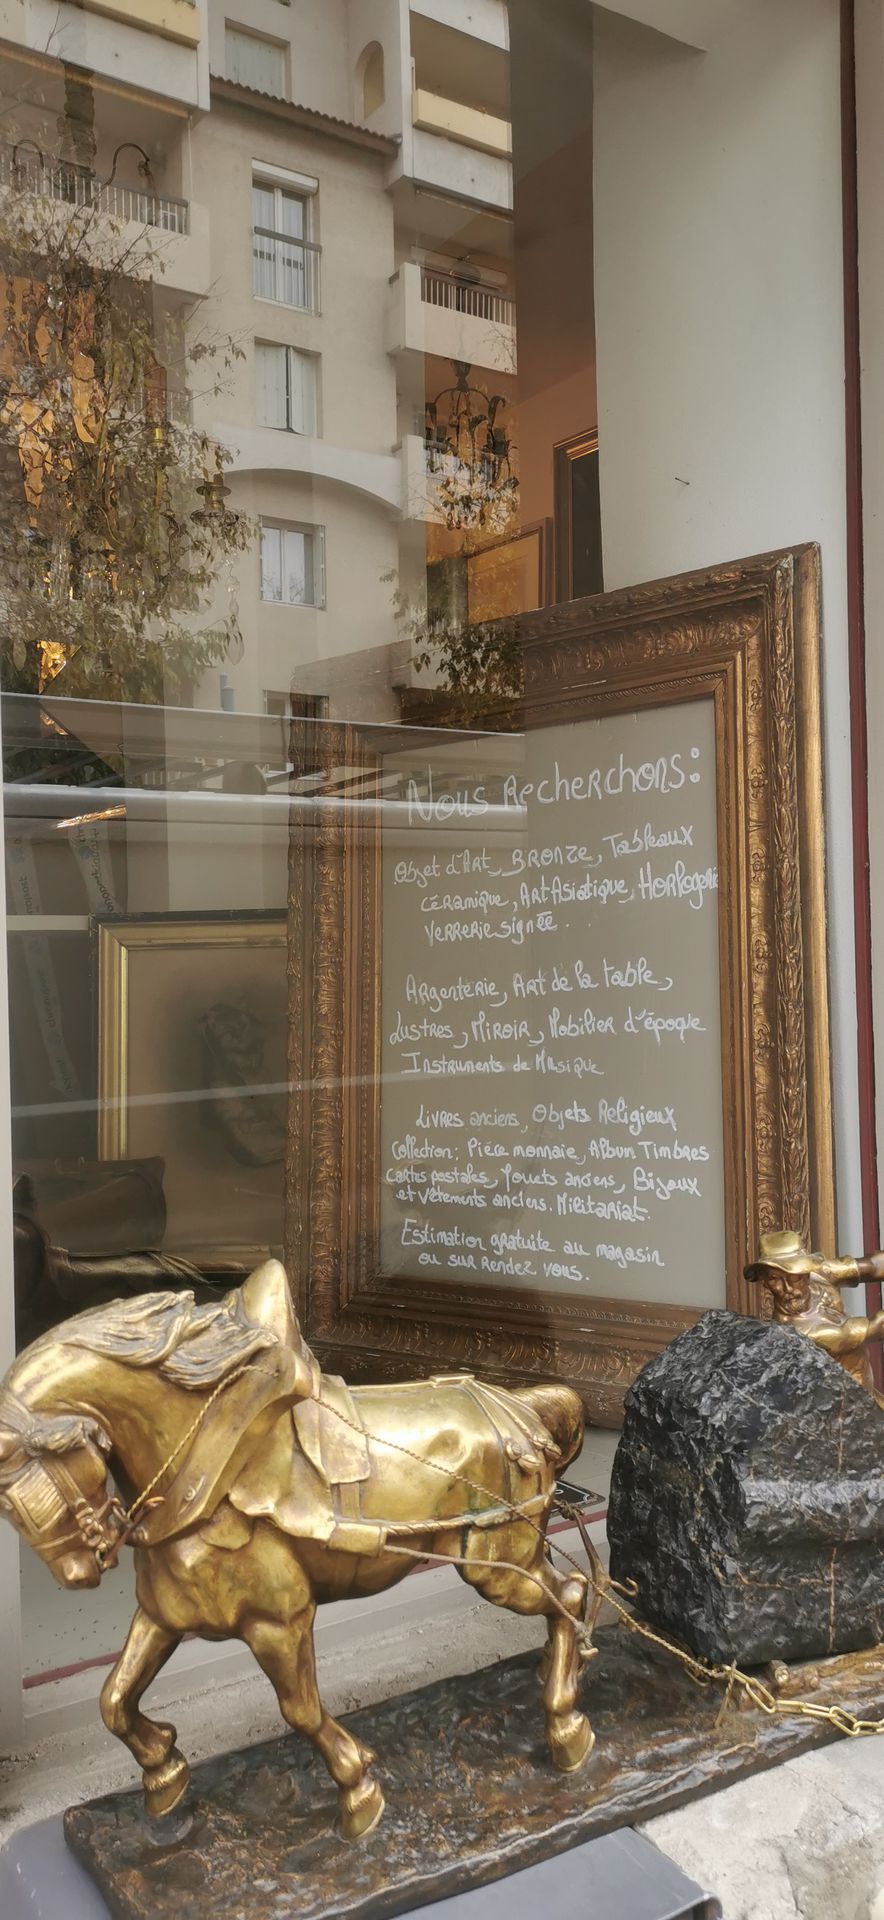 Nous Recherchons:
Objet d'Art, Bronze, Tableaux
Céramique, Art Asiatique, Horlogerie
Verrerie signée...
Argenterie, Art de la table,
Lustres, Miroir, Mobilier d'époque
Instruments de Musique
Livres anciens, Objets Religieux
Collection: Piéce monnaie, Album Timbres
Cartes postales, Jouets anciens, Bijoux
et Vêtements anciens. Militariat.
Estimation gratuite au magasin
ou sur Rendez vous.